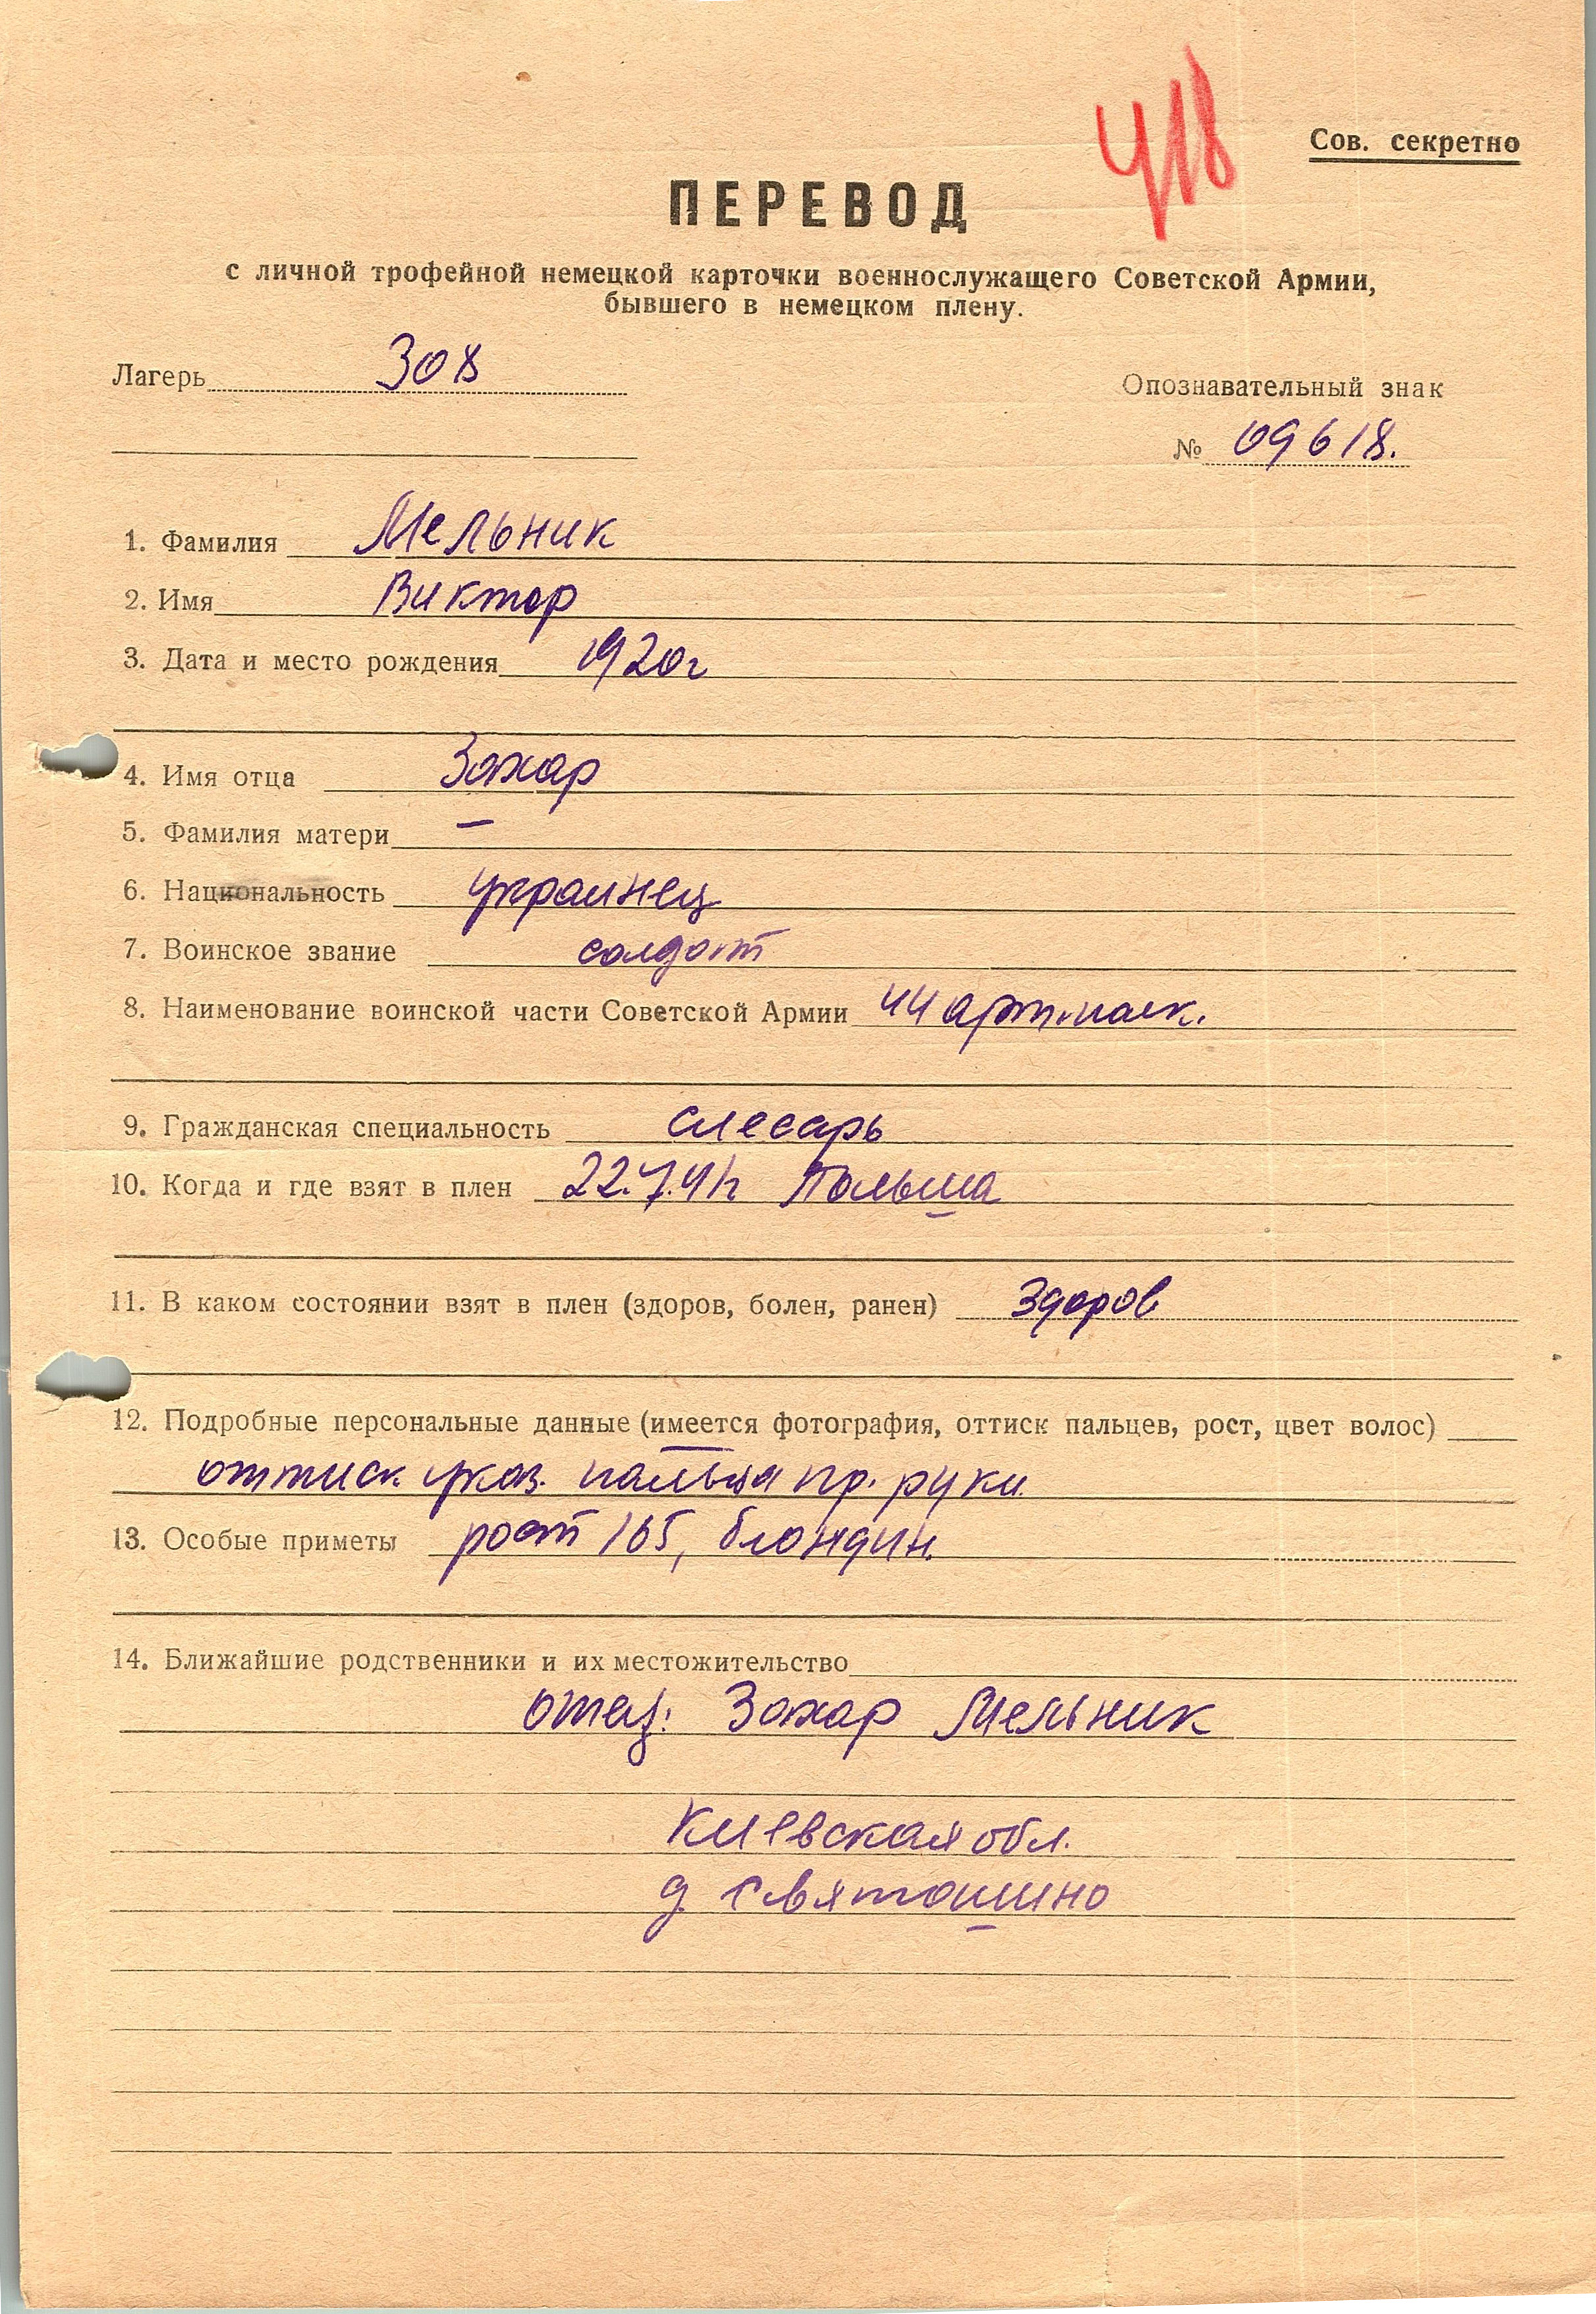 418
Сов. секретно
ПЕРЕВОД
с личной трофейной немецкой карточки военнослужащего Советской Армии,
бывшего в немецком плену.
Лагерь 308
Опознавательный знак
№ 09618.
1. Фамилия Мельник
2. Имя Виктор
3. Дата и место рождения 1920г
4. Имя отца Захар
5. Фамилия матери —
6. Национальность украинец
7. Воинское звание солдат
8. Наименование воинской части Советской Армии 44 арт.полк.
9. Гражданская специальность слесарь
10. Когда и где взят в плен 22.7.41г Польша
11. В каком состоянии взят в плен (здоров, болен, ранен) здоров
12. Подробные персональные данные (имеется фотография, оттиск пальцев, рост, цвет волос)
оттиск указ. пальца пр. руки.
13. Особые приметы рост 165, блондин.
14. Ближайшие родственники и их местожительство
отец: Захар Мельник
Киевская обл.
д. Святошино